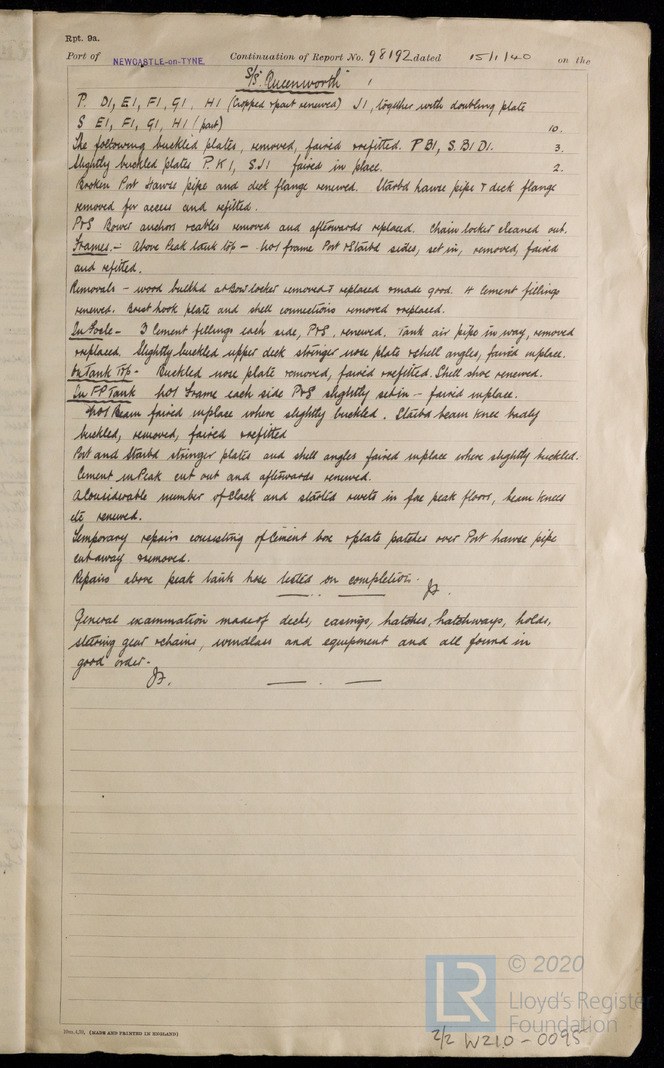 Rpt. 9a.
Port of NEWCASTLE-on-TYNE. Continuation of Report No. 98192 dated 15/1/40 on the
S/S "Queenworth"
P. D1, E1, F1, G1, H1 (Cropped & part renewed) J1, together with doubling plate
S E1, F1, G1, H1 (part) 10.
The following buckled plates, removed, faired & refitted. P B1, S. B1 D1. 3.
Slightly buckled plates P. K1, S. J1 faired in place. 2.
Broken Port Hawse pipe and deck flange renewed. Starbd hawse pipe & deck flange
removed for access and refitted.
P&S Bower anchors & cables removed and afterwards replaced. Chain locker cleaned out.
Frames. - Above Peak tank top - No1 frame Port & Starbd sides, set in, removed, faired
and refitted.
Removals - wood bulkhd at Bow locker removed & replaced & made good. 4 cement fillings
renewed. Brest hook plate and shell connections removed & replaced.
In Focle - 3 Cement fillings each side, P&S, renewed. Tank air pipe in way, removed
& replaced. Slightly buckled upper deck stringer nose plate & shell angles, faired inplace.
On Tank Top - Buckled nose plate removed, faired & refitted. Shell shoe renewed.
In FP Tank No1 Frame each side P&S slightly set in - faired inplace.
No1 Beam faired inplace where slightly buckled. Starbd beam knee
buckled, removed, faired & refitted
Port and Starbd stringer plates and shell angles faired inplace where slightly buckled.
Cement in Peak cut out and afterwards renewed.
A Considerable number of slack and started rivets in fore peak floors, beam knees
etc renewed.
Temporary repairs consisting of Cement box & plate patches over Port hawse pipe
cut away & removed.
Repairs above peak tank hose tested on completion.
General examination made of decks, casings, hatches, hatchways, holds,
steering gear & chains, windlass and equipment and all found in
good order.
(MADE AND PRINTED IN ENGLAND)
LR
© 2020
Lloyd's Register
Foundation
2/2 W210-0095